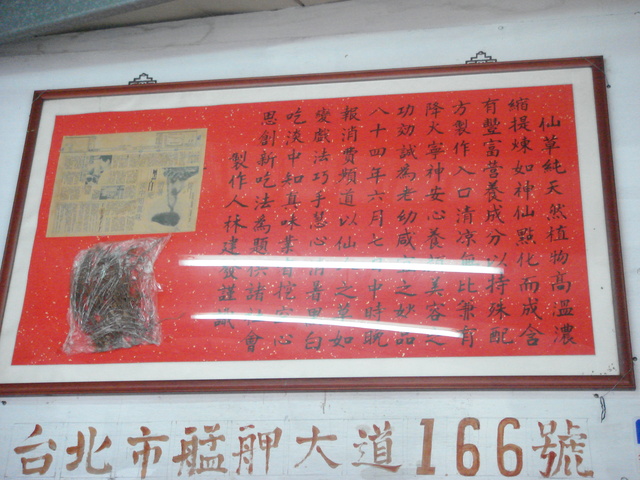 仙草純天然植物高溫濃
縮提煉如神仙點化而成含
有豐富營養成分以特殊配
方製作入口清凉無比兼有
降火寧神安心養顏美容之
功効誠為老幼咸宜之妙品
八十四年六月七日中時晚
報消費頻道以仙 之草如
變戲法巧手慧心 普 白
吃淡中知真味 挖空心
思創新吃法為題供諸社會
製作人 建 謹識
台北市艋舺大道166號